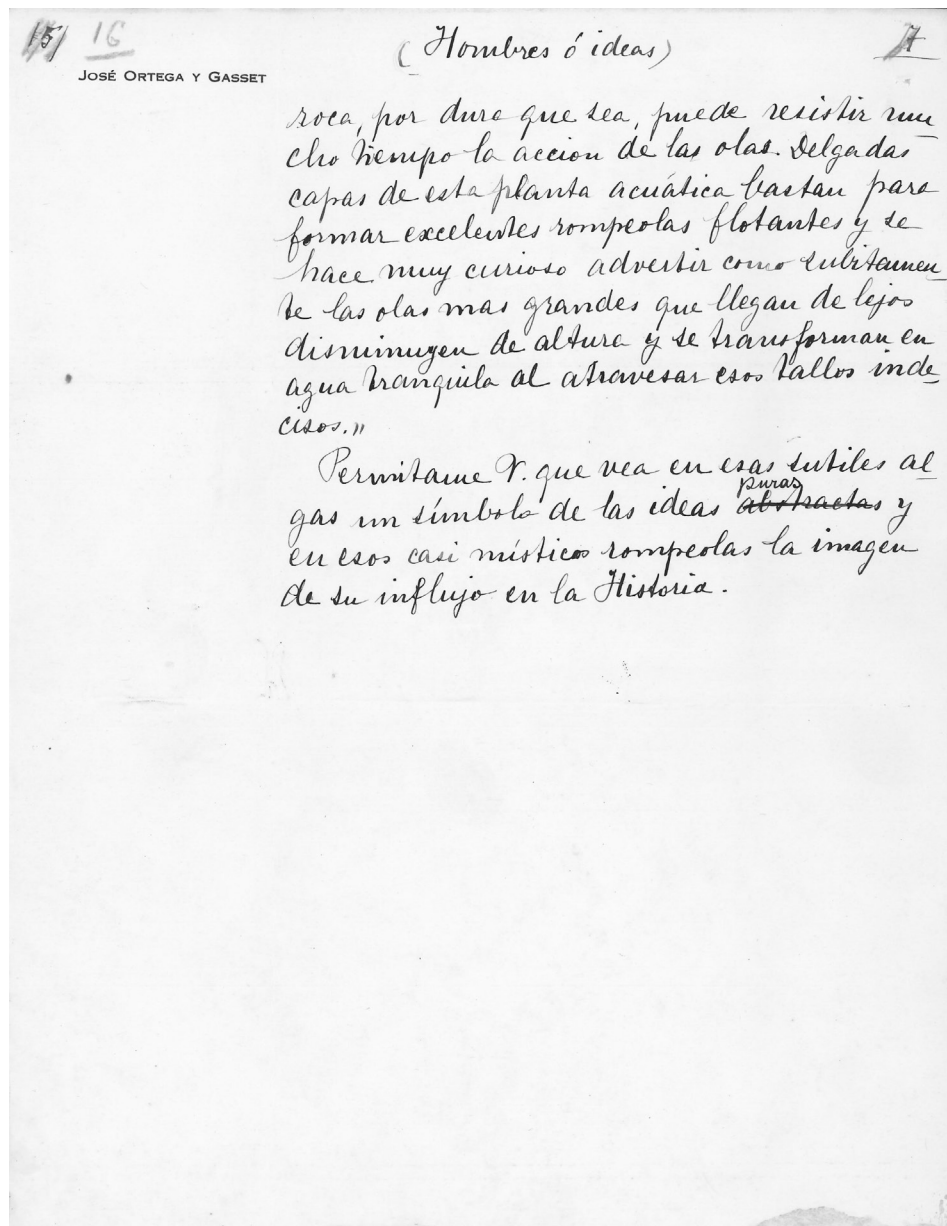 15 16 (Hombres ó ideas) 7
JOSÉ ORTEGA Y GASSET
roca, por dura que sea, puede resistir mu-
cho tiempo la accion de las olas. Delgadas
capas de esta planta acuática bastan para
formar excelentes rompeolas flotantes y se
hace muy curioso advertir como subitamen-
te las olas mas grandes que llegan de lejos
disminuyen de altura y se transforman en
agua tranquila al atravesar esos tallos inde-
cisos.»
Permítame V. que vea en esas sutiles al-
puras
gas un símbolo de las ideas abstractas y
en esos casi místicos rompeolas la imagen
de su influjo en la Historia.